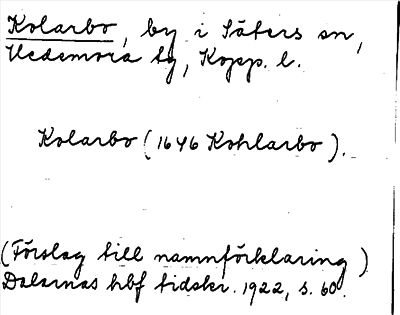 Kolarbo, by i Säters sn,
Hedemora tg, Kopp. l.
Kolarbo (1646 Kohlarbo).
(Förslag till namnförklaring)
Dalarnas hbf tidskr. 1922, s. 60.